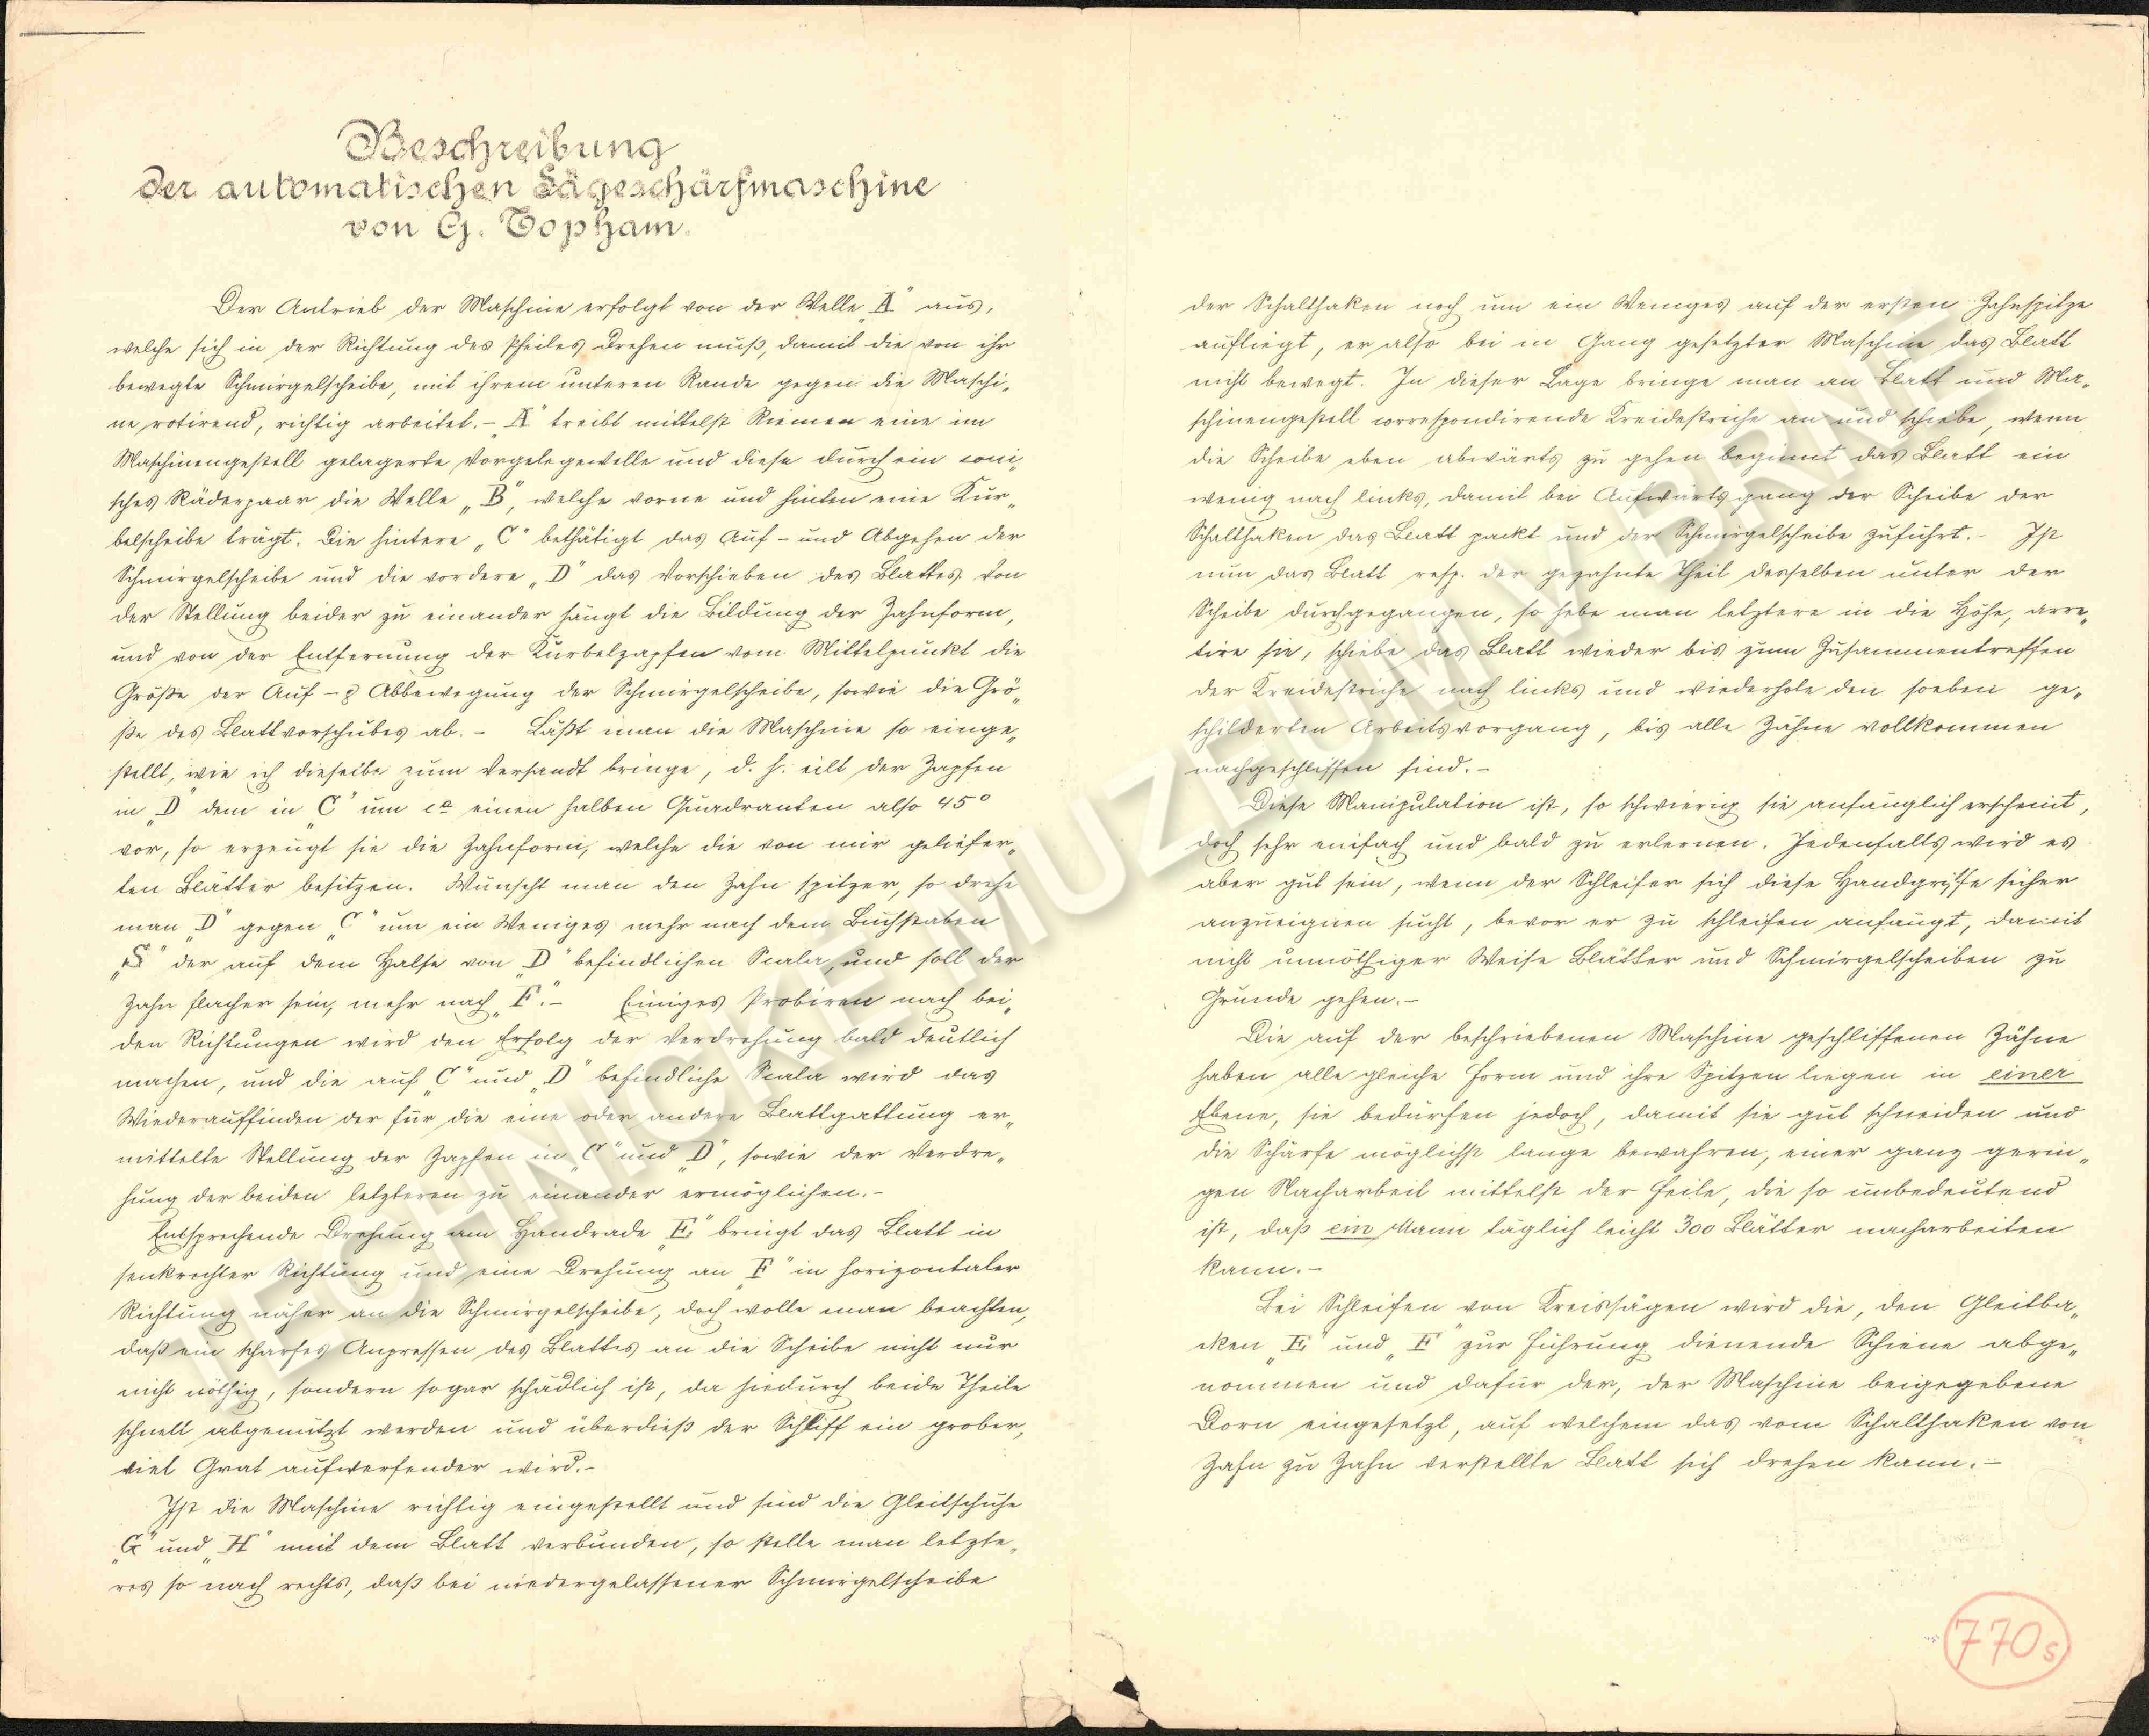 Beschreibung
der automatischen Sägeschärfmaschine
von G. Topham.
Der Antrieb der Maschine erfolgt von der Welle „A" aus,
welche sich in der Richtung des Pfeiles drehen muß, damit die von ihr
bewegte Schmirgelscheibe, mit ihrem unteren Rande gegen die Maschi„
ne rotirend, richtig arbeitet. – „A" treibt mittelst Riemen eine im
Maschinengestell gelagerte Vorgelegewelle und diese durch ein coni„
sches Räderpaar die Welle „B", welche vorne und hinten eine Kur„
belscheibe trägt. Die hintere „C" bethätigt das Auf- und Abgehen der
Schmirgelscheibe und die vordere „D" das Vorschieben des Blattes. Von
der Stellung beider zu einander hängt die Bildung der Zahnform,
und von der Entfernung der Kurbelzapfen vom Mittelpunkt die
Größe der Auf- & Abbewegung der Schmirgelscheibe, sowie die Grö„
ße des Blattvorschubes ab. – Läßt man die Maschine so einge„
stellt, wie ich dieselbe zum Versandt bringe, d. h. eilt der Zapfen
in „D" dem in „C" um ca einen halben Quadranten also 45°
vor, so erzeugt sie die Zahnform, welche die von mir geliefer„
ten Blätter besitzen. Wünscht man den Zahn spitzer, so drehe
man „D" gegen „C" um ein Weniges mehr nach dem Buchstaben
„S" der auf dem Halse von „D" befindlichen Scala, und soll der
Zahn flacher sein, mehr nach „F". – Einiges Probiren nach bei„
den Richtungen wird den Erfolg der Verdrehung bald deutlich
machen, und die auf „C" und „D" befindliche Scala wird das
Wiederauffinden der für die eine oder andere Blattgattung er„
mittelte Stellung der Zapfen in „C" und „D", sowie der Verdre„
hung der beiden letzteren zu einander ermöglichen. –
Entsprechende Drehung am Handrade „E" bringt das Blatt in
senkrechter Richtung und eine Drehung an „F" in horizontaler
Richtung näher an die Schmirgelscheibe, doch wolle man beachten,
daß ein scharfes Anpressen des Blattes an die Scheibe nicht nur
nicht nöthig, sondern sogar schädlich ist, da hiedurch beide Theile
schnell abgenützt werden und überdieß der Schliff ein grober,
viel Grat aufwerfender wird. –
Ist die Maschine richtig eingestellt und sind die Gleitschuhe
„G" und „H" mit dem Blatt verbunden, so stelle man letzte„
res so nach rechts, daß bei niedergelassener Schmirgelscheibe
der Schalthaken noch um ein Weniges auf der ersten Zahnspitze
aufliegt, er also bei in Gang gesetzter Maschine das Blatt
nicht bewegt. In dieser Lage bringe man an Blatt und Ma„
schinengestell correspondirende Kreidestriche an und schiebe, wenn
die Scheibe eben abwärts zu gehen beginnt das Blatt ein
wenig nach links, damit bei Aufwärtsgang der Scheibe der
Schalthaken das Blatt packt und der Schmirgelscheibe zuführt. – Ist
nun das Blatt resp. der gezahnte Theil desselben unter der
Scheibe durchgegangen, so hebe man letztere in die Höhe, arre„
tire sie, schiebe das Blatt wieder bis zum Zusammentreffen
der Kreidestriche nach links und wiederhole den soeben ge„
schilderten Arbeitsvorgang, bis alle Zähne vollkommen
nachgeschliffen sind. –
Diese Manipulation ist, so schwierig sie anfänglich erscheint,
doch sehr einfach und bald zu erlernen. Jedenfalls wird es
aber gut sein, wenn der Schleifer sich diese Handgriffe sicher
anzueignen sucht, bevor er zu schleifen anfängt, damit
nicht unnöthiger Weise Blätter und Schmirgelscheiben zu
Grunde gehen. –
Die auf der beschriebenen Maschine geschliffenen Zähne
haben alle gleiche Form und ihre Spitzen liegen in einer
Ebene, sie bedürfen jedoch, damit sie gut schneiden und
die Schärfe möglichst lange bewahren, einer ganz gerin„
gen Nacharbeit mittelst der Feile, die so unbedeutend
ist, daß ein Mann täglich leicht 300 Blätter nacharbeiten
kann. –
Bei Schleifen von Kreissägen wird die, den Gleitba„
cken „E" und „F" zur Führung dienende Schiene abge„
nommen und dafür der, der Maschine beigegebene
Dorn eingesetzt, auf welchem das vom Schalthaken von
Zahn zu Zahn verstellte Blatt sich drehen kann. –
770s
TECHNICKÉ MUZEUM V BRNĚ